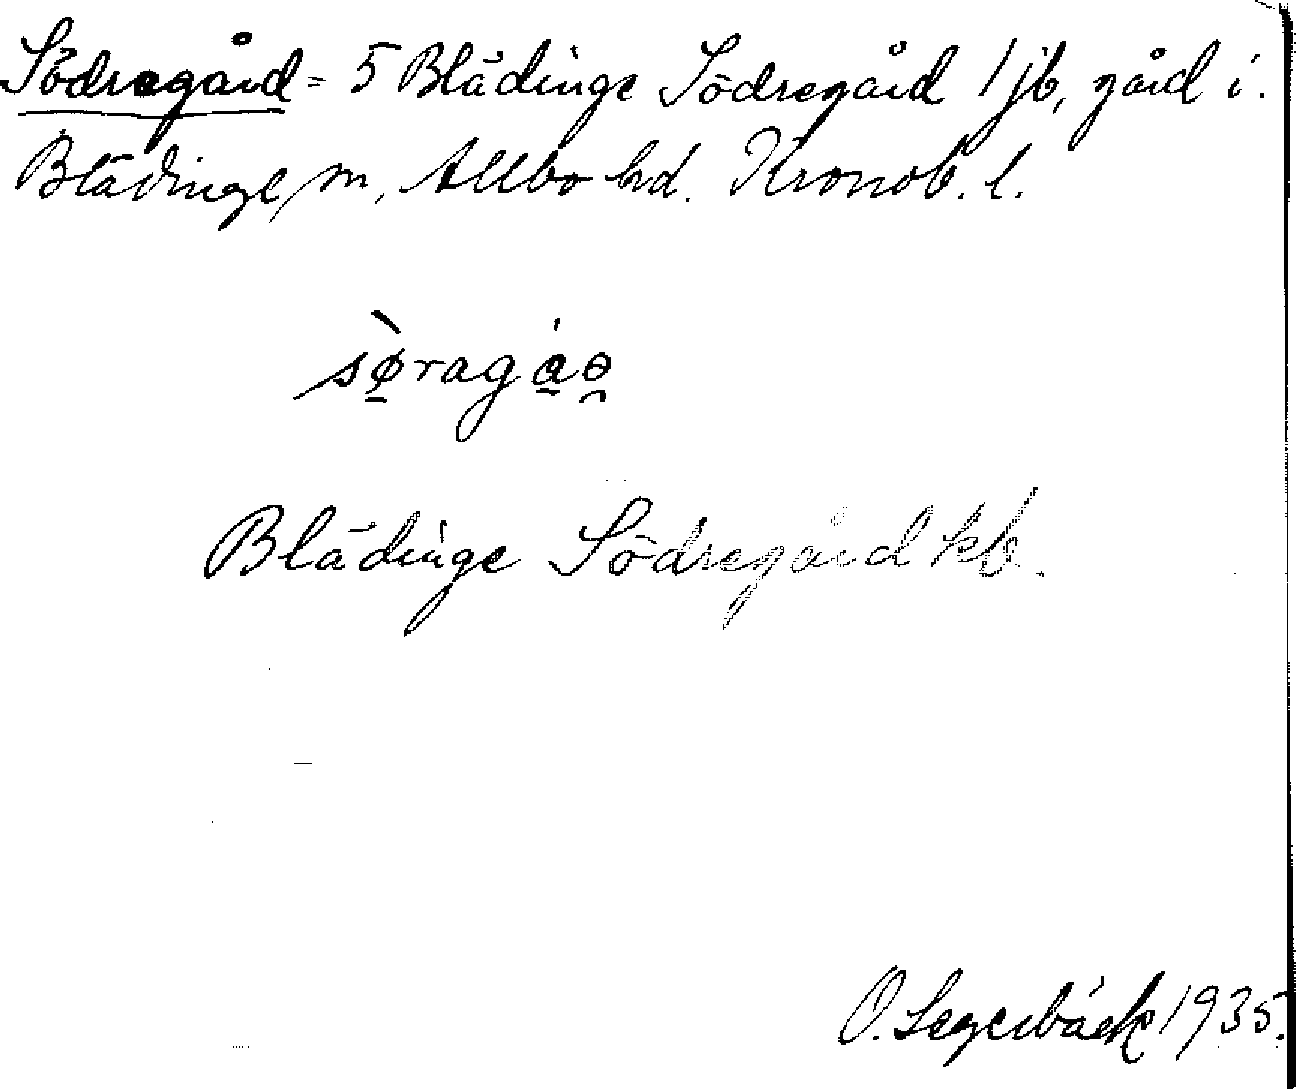 Södregård = 5 Blädinge Södregård 1 jb, gård i.
Blädinge sn, Allbo hd. Kronob. l.
sø̠̀ragá̠ə̯
Blädinge Södregård kb.
O. Segerbäck 1935.